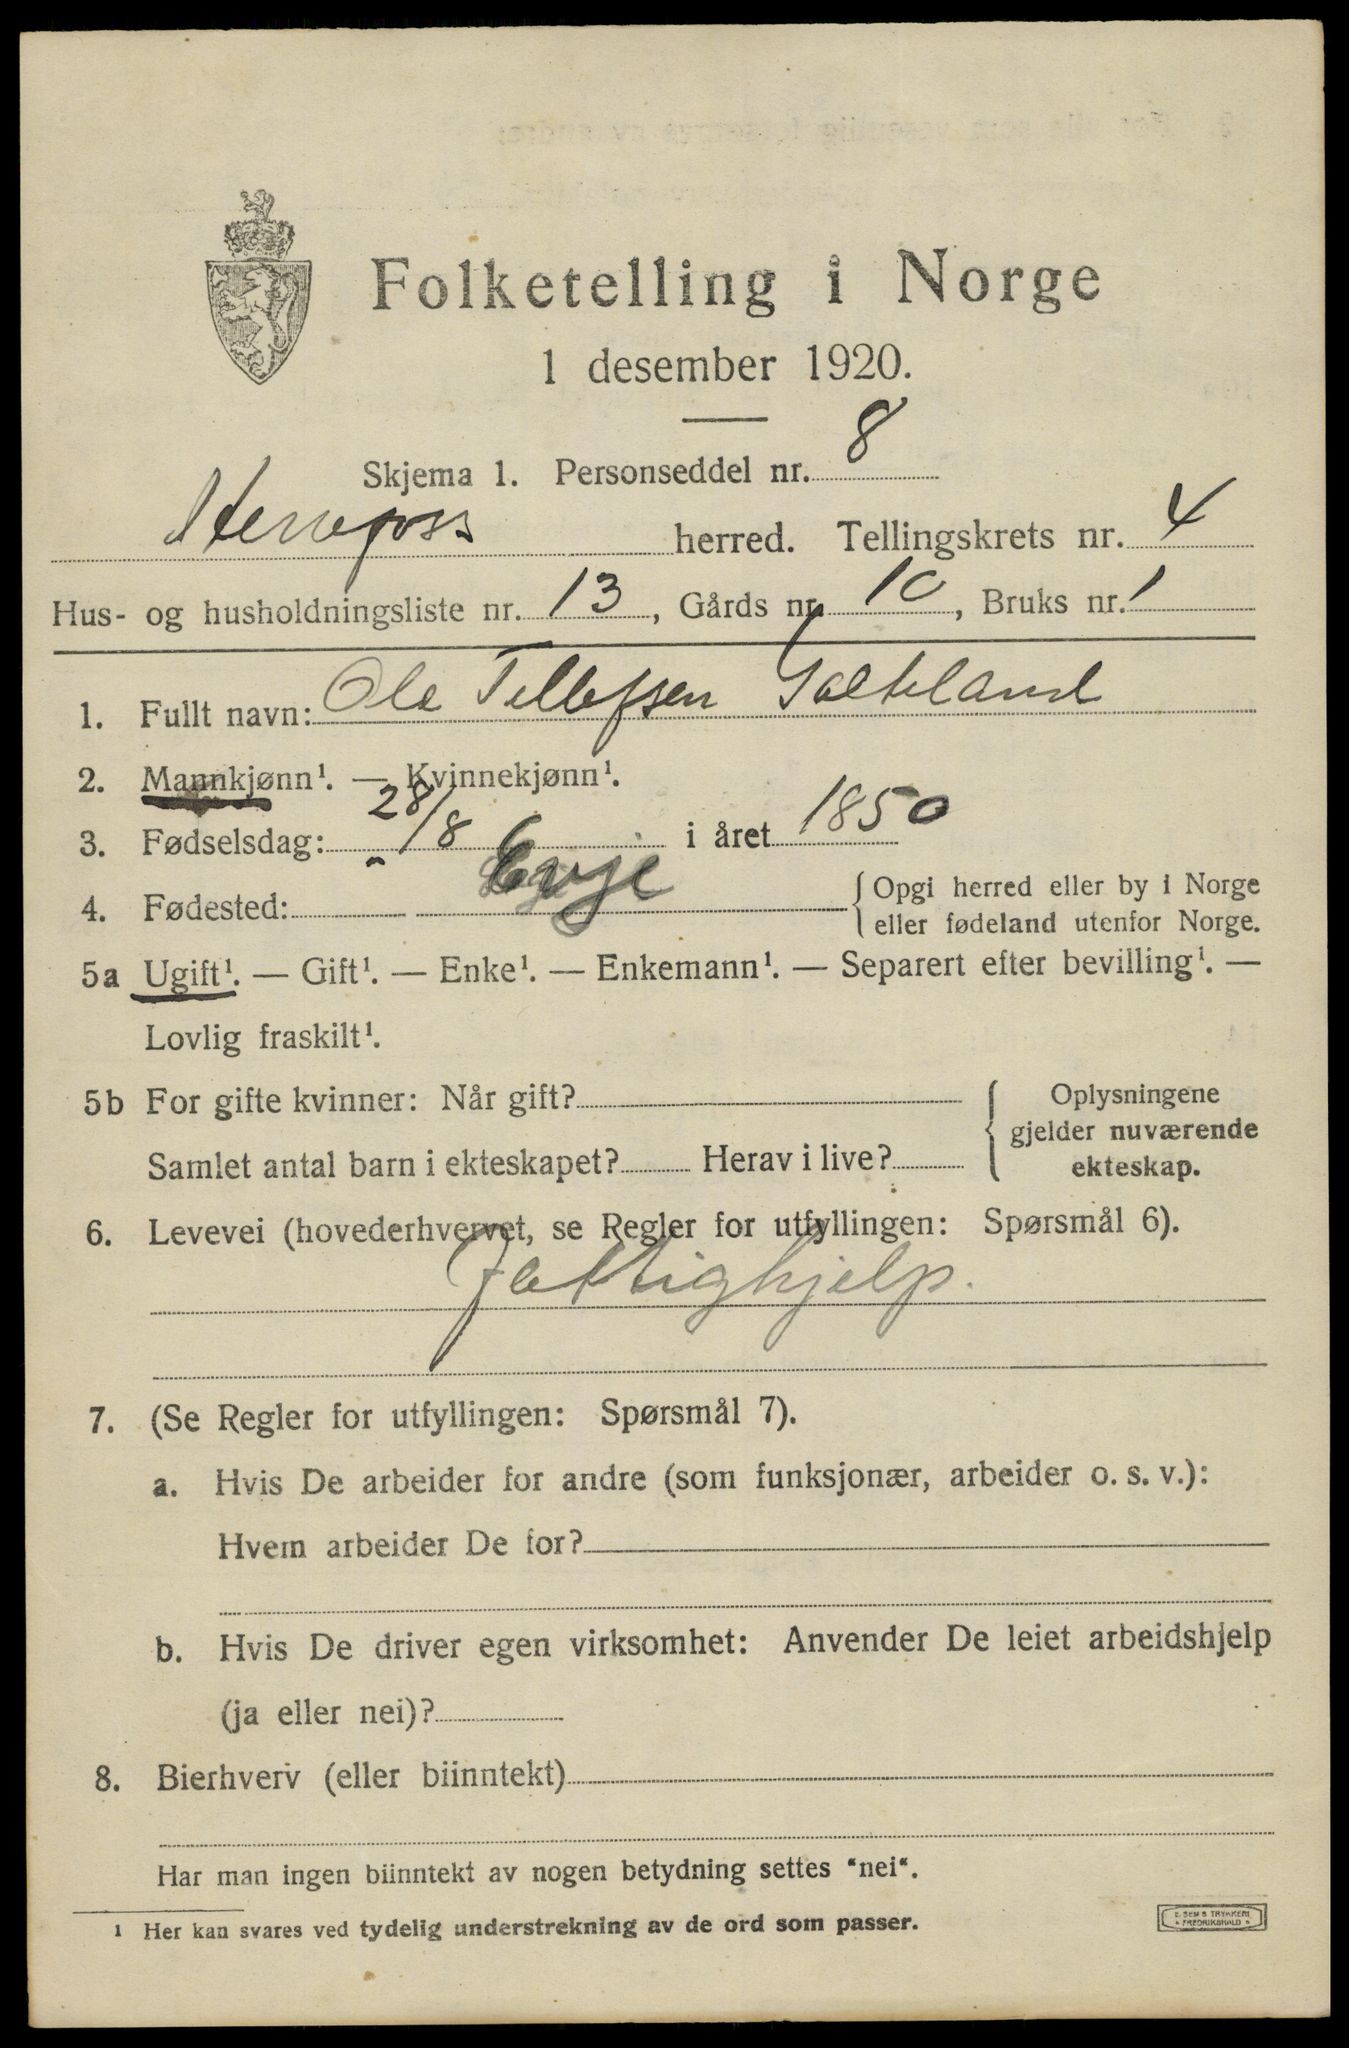 Folketelling i Norge
1 desember 1920.
Skjema 1. Personseddel nr. 8
Herefoss herred. Tellingskrets nr. 4
Hus- og husholdningsliste nr. 13, Gårds nr. 10, Bruks nr. 1
1. Fullt navn: Ole Tellefsen Galteland
2. Mannkjønn¹. — Kvinnekjønn¹.
3. Fødselsdag: 28/8 i året 1850
4. Fødested: Evje { Opgi herred eller by i Norge
eller fødeland utenfor Norge.
5a Ugift¹. — Gift¹. — Enke¹. — Enkemann¹. — Separert efter bevilling¹. —
Lovlig fraskilt¹.
5b For gifte kvinner: Når gift? { Oplysningene
gjelder nuværende
Samlet antal barn i ekteskapet? Herav i live? ekteskap.
6. Levevei (hovederhvervet, se Regler for utfyllingen: Spørsmål 6).
Fattighjelp.
7. (Se Regler for utfyllingen: Spørsmål 7).
a. Hvis De arbeider for andre (som funksjonær, arbeider o. s. v.):
Hvem arbeider De for?
b. Hvis De driver egen virksomhet: Anvender De leiet arbeidshjelp
(ja eller nei)?
8. Bierhverv (eller biinntekt)
Har man ingen biinntekt av nogen betydning settes "nei".
¹ Her kan svares ved tydelig understrekning av de ord som passer.
E. SEM'S TRYKKERI
• FREDRIKSHALD •